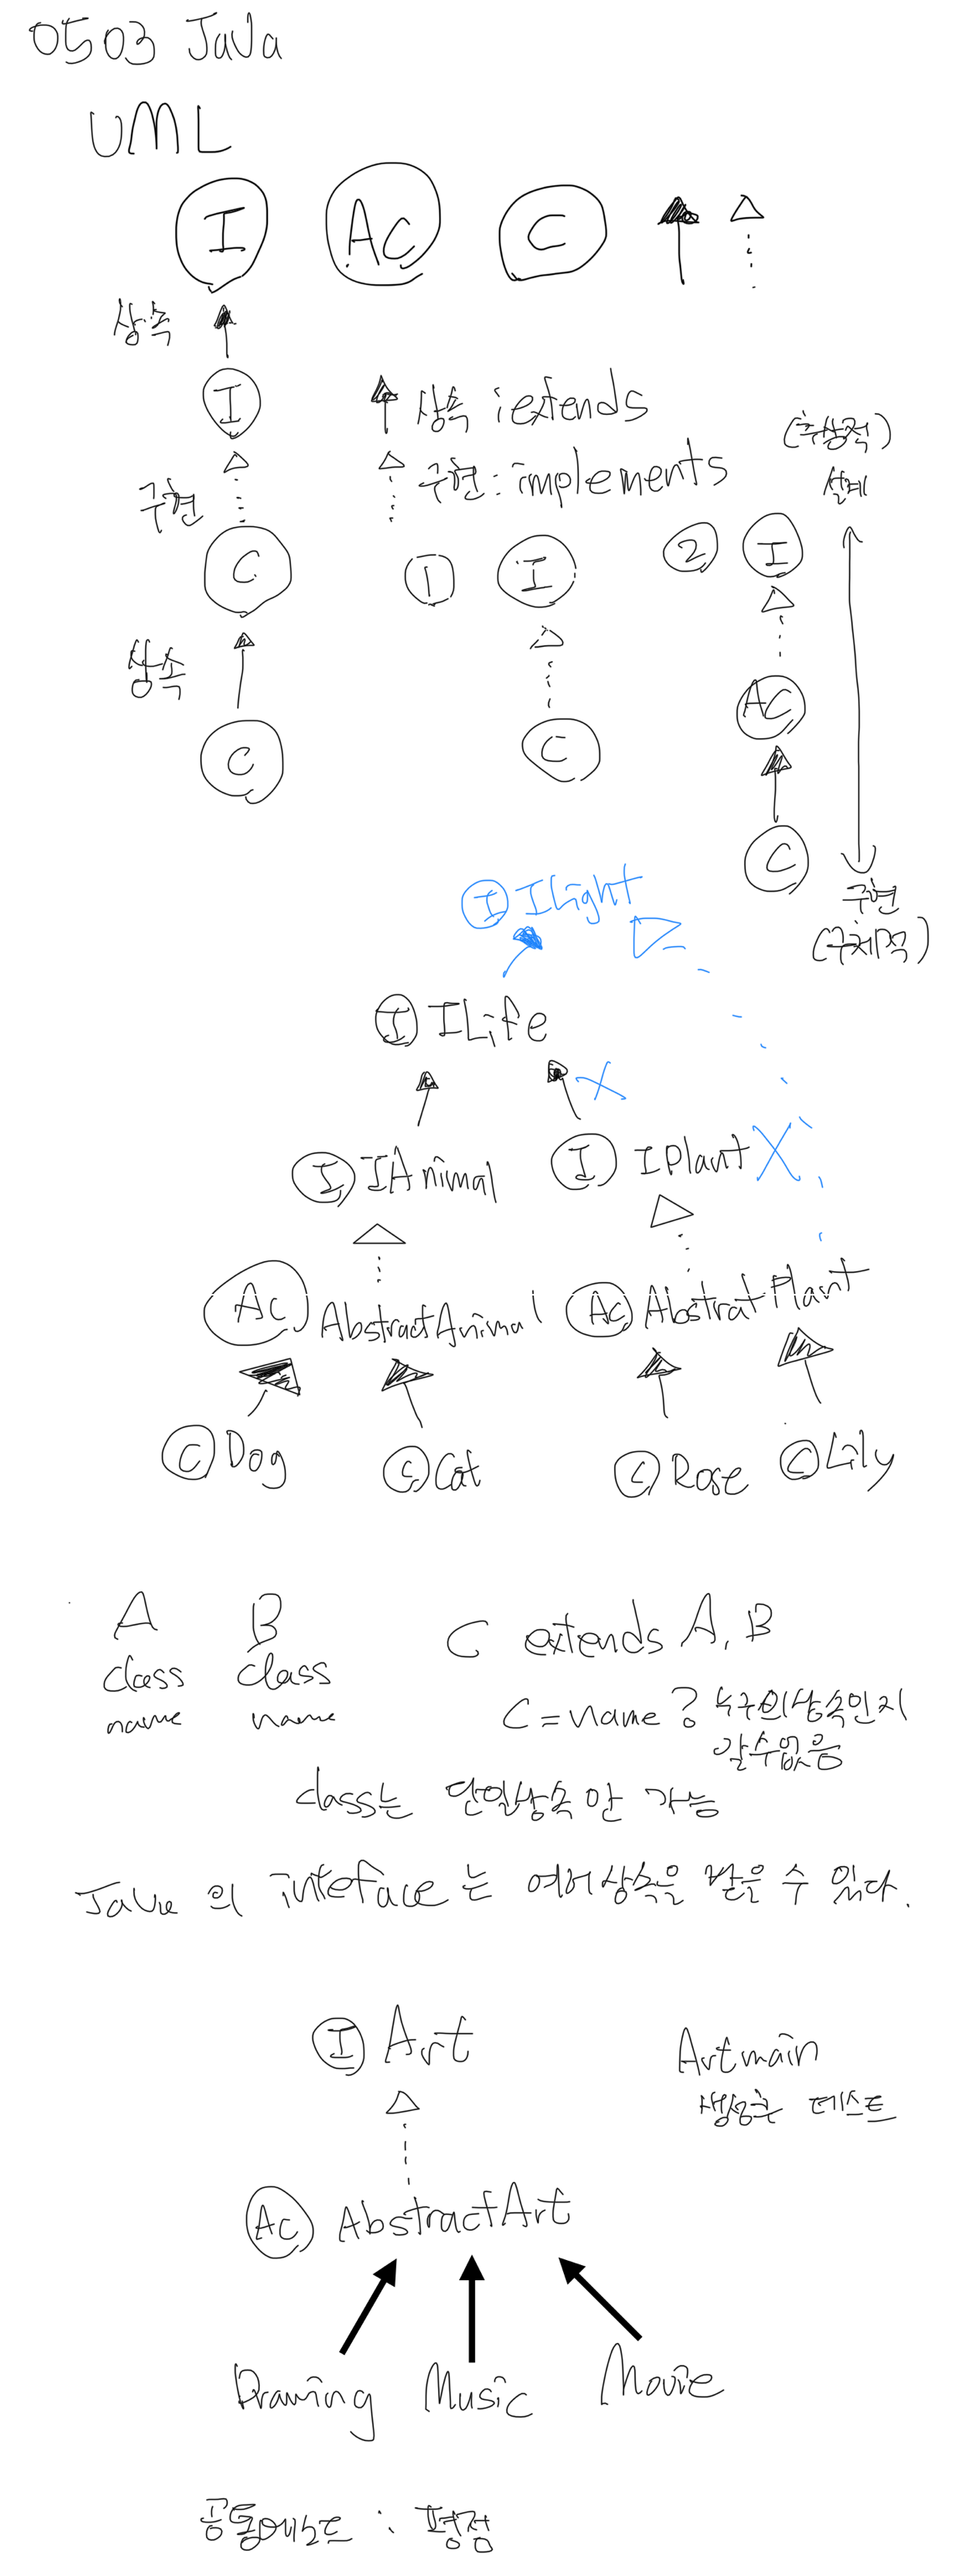 0503 Java
UML
I AC C
상속
I
상속 : extends
구현
구현 : implements
(추상적)
설계
C
① I
② I
상속
AC
C
C
C
구현
(구체적)
I ILight
I ILife
X
I IAnimal
I IPlant X
AC AbstractAnimal
AC AbstratPlant
C Dog
C Cat
C Rose
C Lily
A B
class class
name name
C extends A, B
C = name ? 누구의 상속인지
알수없음
class는 단일상속만 가능
Java 의 inteface 는 여러상속을 받을 수 있다.
I Art
Artmain
생성후 테스트
AC AbstractArt
Drawing Music Movie
공통메소드 : 평점